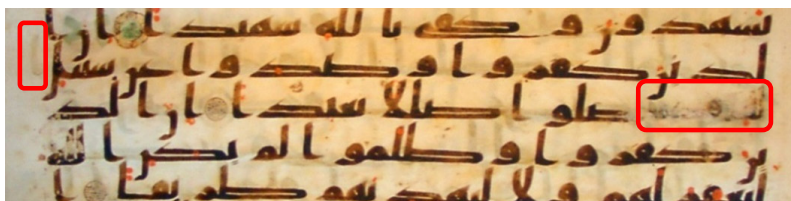 يشهدون وكفى بالله شهيدا ان ا
لذين كفروا وصدوا عن سبيل
ضلوا ضللا بعيدا ان الذ
ين كفروا وظلموا لم يكن الله
ليغفر لهم ولا ليهديهم طريقا ا